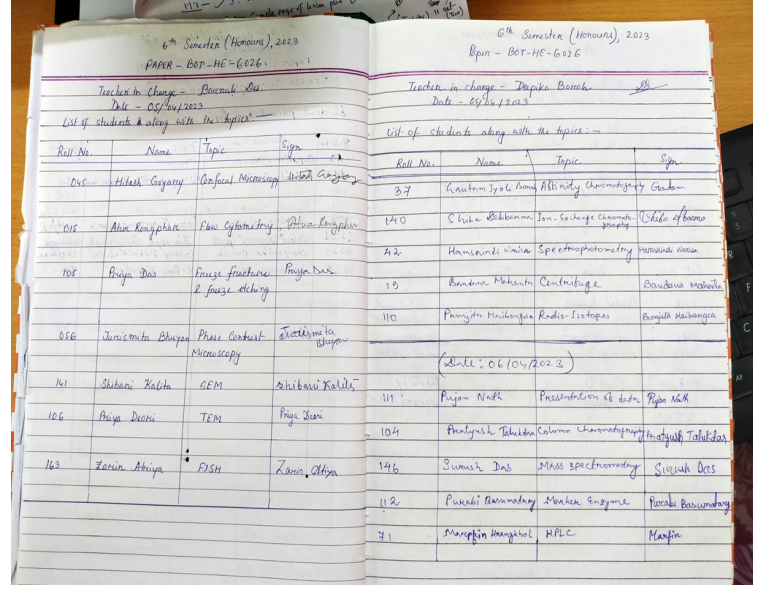 6th Semester (Honours), 2023
PAPER - BOT-HE-6026.
Teacher in Charge - Barnali Das.
Date - 05/04/2023
List of students & along with the topics:-
Roll No. Name Topic Sign
045 Hitesh Goyary Confocal Microscopy Hitesh Goyary
015 Atun Rongphar Flow Cytometry Atun Rongphar
105 Priya Das Freeze fracture Priya Das
& freeze etching
056 Jurismita Bhuyan Phase Contrast Jurismita
Microscopy Bhuyan
141 Shibani Kalita SEM Shibani Kalita
106 Priya Deori TEM Priya Deori
163 Zarin Atriya FISH Zarin
6th Semester (Honours), 2023
Paper - BOT-HE-6026
Teacher in charge - Dipika Borah
Date - 05/04/2023
List of students along with the topics:-
Roll No. Name Topic Sign
37 Gautam Jyoti Affinity Chromatography Gautam
140 Shiba Debbarma Ion-Exchange Chromato-
graphy
42 Spectrophotometry
19 Bandana Mahanta Centrifuge Bandana Mahanta
110 Radio-Isotopes
(Date: 06/04/2023)
111 Pujan Nath Presentation of data Pujan Nath
104 Pratyush Talukdar Column Chromatography Pratyush Talukdar
146 Suruch Das Mass spectrometry Suruch Das
112 Purabi Basumatary Marker Enzyme Purabi Basumatary
71 HPLC Marfin